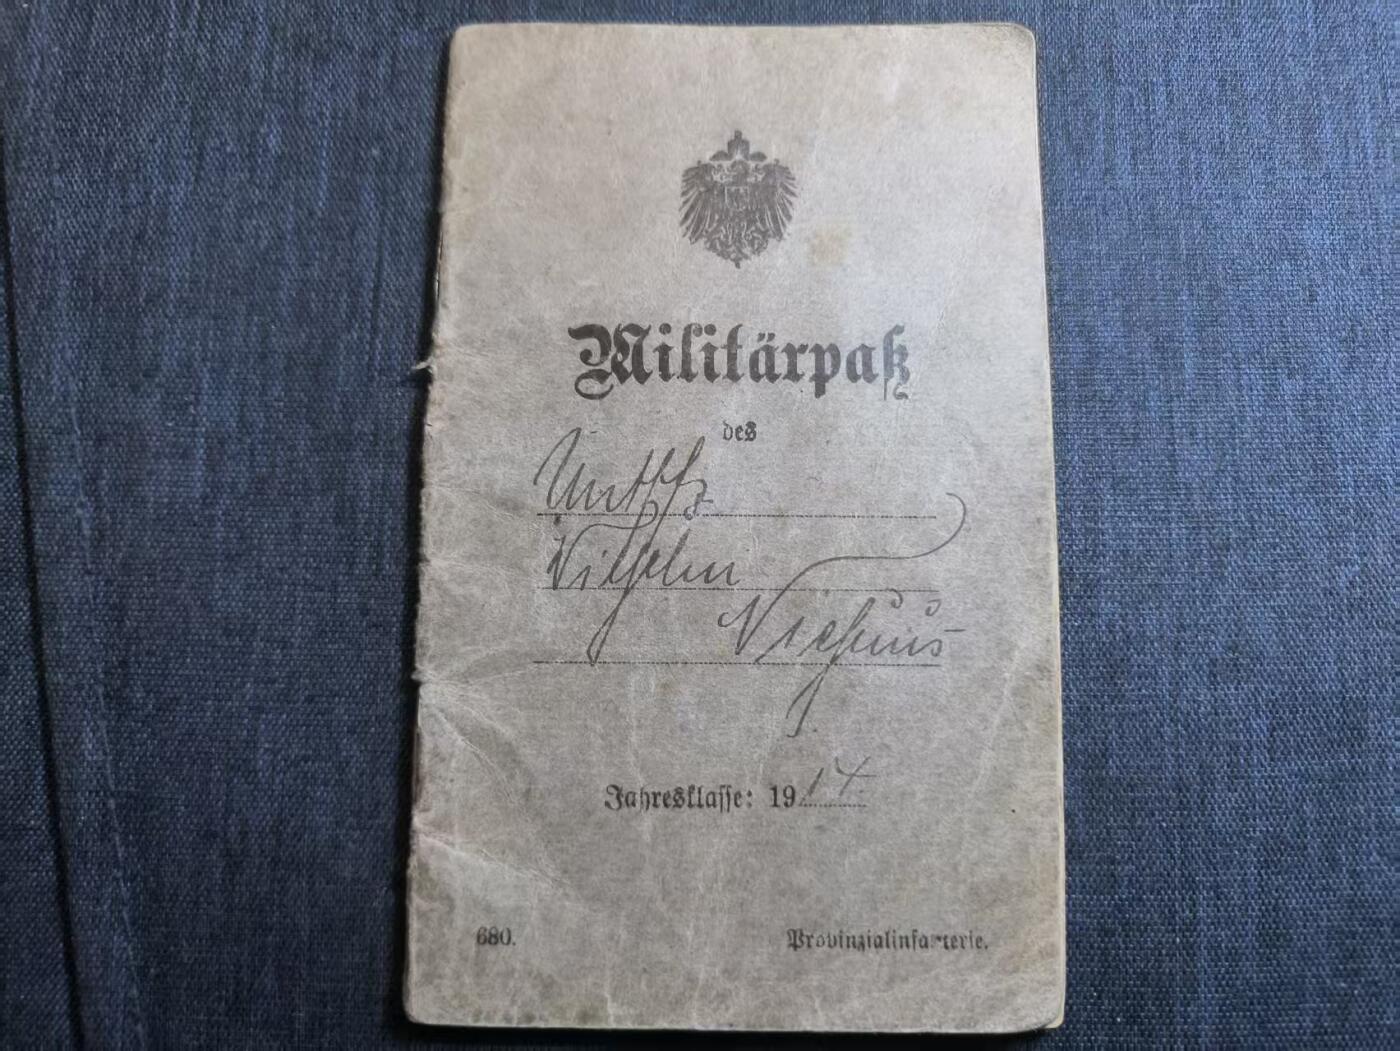 Militärpaß
des
Untffz
Wilhelm
Niehuus
Jahresklasse: 1914.
680.
Provinzialinfanterie.